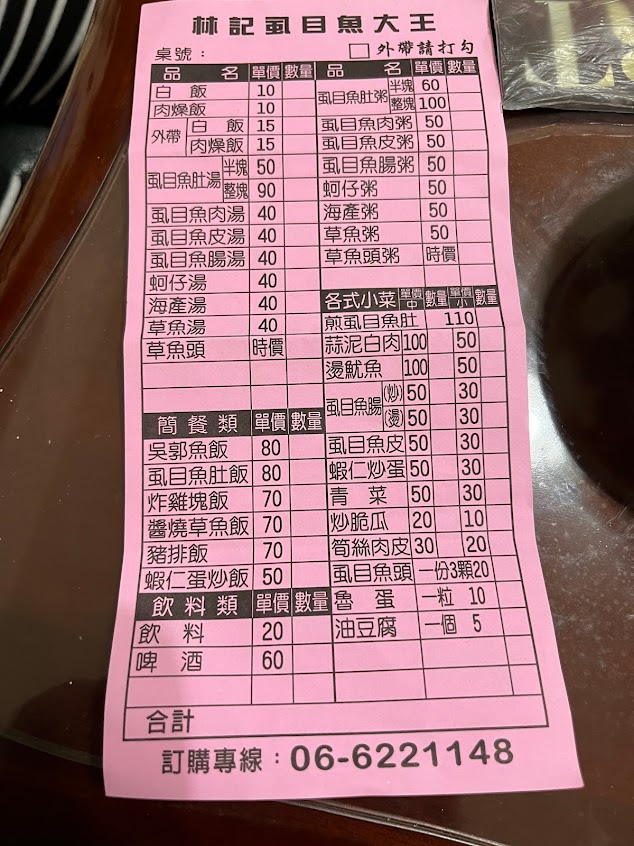 林記虱目魚大王
桌號：
□ 外帶請打勾
品 名 單價 數量
白 飯 10
肉燥飯 10
外帶 白 飯 15
肉燥飯 15
虱目魚肚湯 半塊 50
整塊 90
虱目魚肉湯 40
虱目魚皮湯 40
虱目魚腸湯 40
蚵仔湯 40
海產湯 40
草魚湯 40
草魚頭 時價
簡餐類 單價 數量
吳郭魚飯 80
虱目魚肚飯 80
炸雞塊飯 70
醬燒草魚飯 70
豬排飯 70
蝦仁蛋炒飯 50
飲料類 單價 數量
飲 料 20
啤 酒 60
品 名 單價 數量
虱目魚肚粥 半塊 60
整塊 100
虱目魚肉粥 50
虱目魚皮粥 50
虱目魚腸粥 50
蚵仔粥 50
海產粥 50
草魚粥 50
草魚頭粥 時價
各式小菜 單價中 數量 單價小 數量
煎虱目魚肚 110
蒜泥白肉 100 50
燙魷魚 100 50
虱目魚腸 (炒) 50 30
(燙) 50 30
虱目魚皮 50 30
蝦仁炒蛋 50 30
青 菜 50 30
炒脆瓜 20 10
筍絲肉皮 30 20
虱目魚頭 一份3顆20
魯 蛋 一粒 10
油豆腐 一個 5
合計
訂購專線：06-6221148